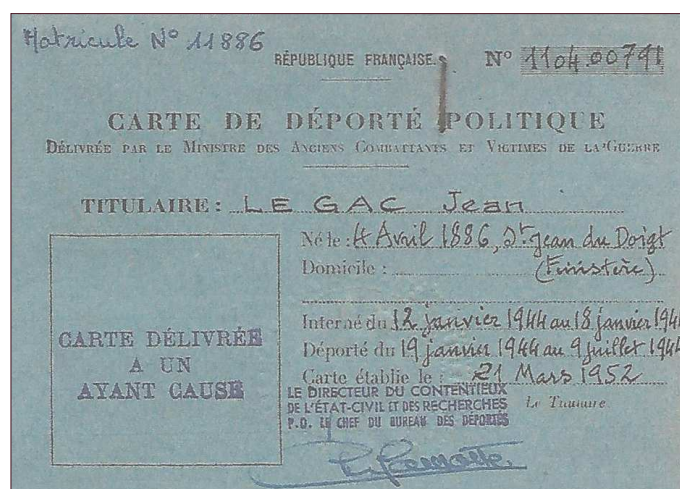 Matricule N° 11886
RÉPUBLIQUE FRANÇAISE.
N° 1104.00791
CARTE DE DÉPORTÉ POLITIQUE
DÉLIVRÉE PAR LE MINISTRE DES ANCIENS COMBATTANTS ET VICTIMES DE LA GUERRE
TITULAIRE : LE GAC Jean
Né le : 4 Avril 1886, St Jean du Doigt
Domicile : (Finistère)
Interné du 12 janvier 1944 au 18 janvier 194
Déporté du 19 janvier 1944 au 9 juillet 1944
Carte établie le : 21 Mars 1952
CARTE DÉLIVRÉE
A UN
AYANT CAUSE
LE DIRECTEUR DU CONTENTIEUX
DE L'ÉTAT-CIVIL ET DES RECHERCHES
P.O. LE CHEF DU BUREAU DES DÉPORTÉS
Le Titulaire